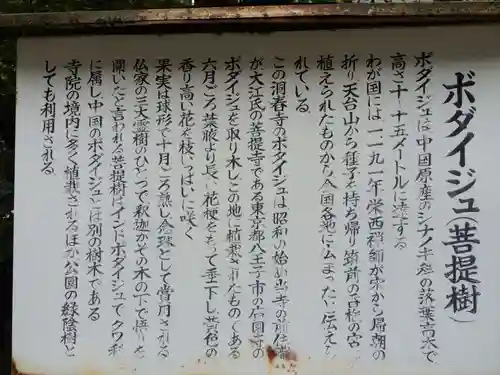 ボダイジュ(菩提樹)
ボダイジュは中国原産のシナノキ
の落葉高木で
高さ十〜十五メートルに達する
わが国には一一九一年栄西禅師が宋から帰朝の
折り天台山から種子を持ち帰り筑前の香椎の宮に
植えられたものから全国各地に広まったと伝えら
れている。
この洞春寺のボダイジュは昭和の始め当寺の前住職
が大江氏の菩提寺である東京都八王子市の
寺の
ボダイジュを取り木しこの地に植栽されたものである
六月ごろ葉腋より長い花梗をもって垂下し黄色の
香り高い花を枝いっぱいに咲く
果実は球形で十月ごろ熟し念珠として賞用される
仏家の三大霊樹のひとつで釈迦がその木の下で悟りを
開いたと言われる菩提樹はインドボダイジュでクワ科
に属し中国のボダイジュとは別の樹木である
寺院の境内に多く植栽されるほか公園の緑陰樹と
しても利用される。